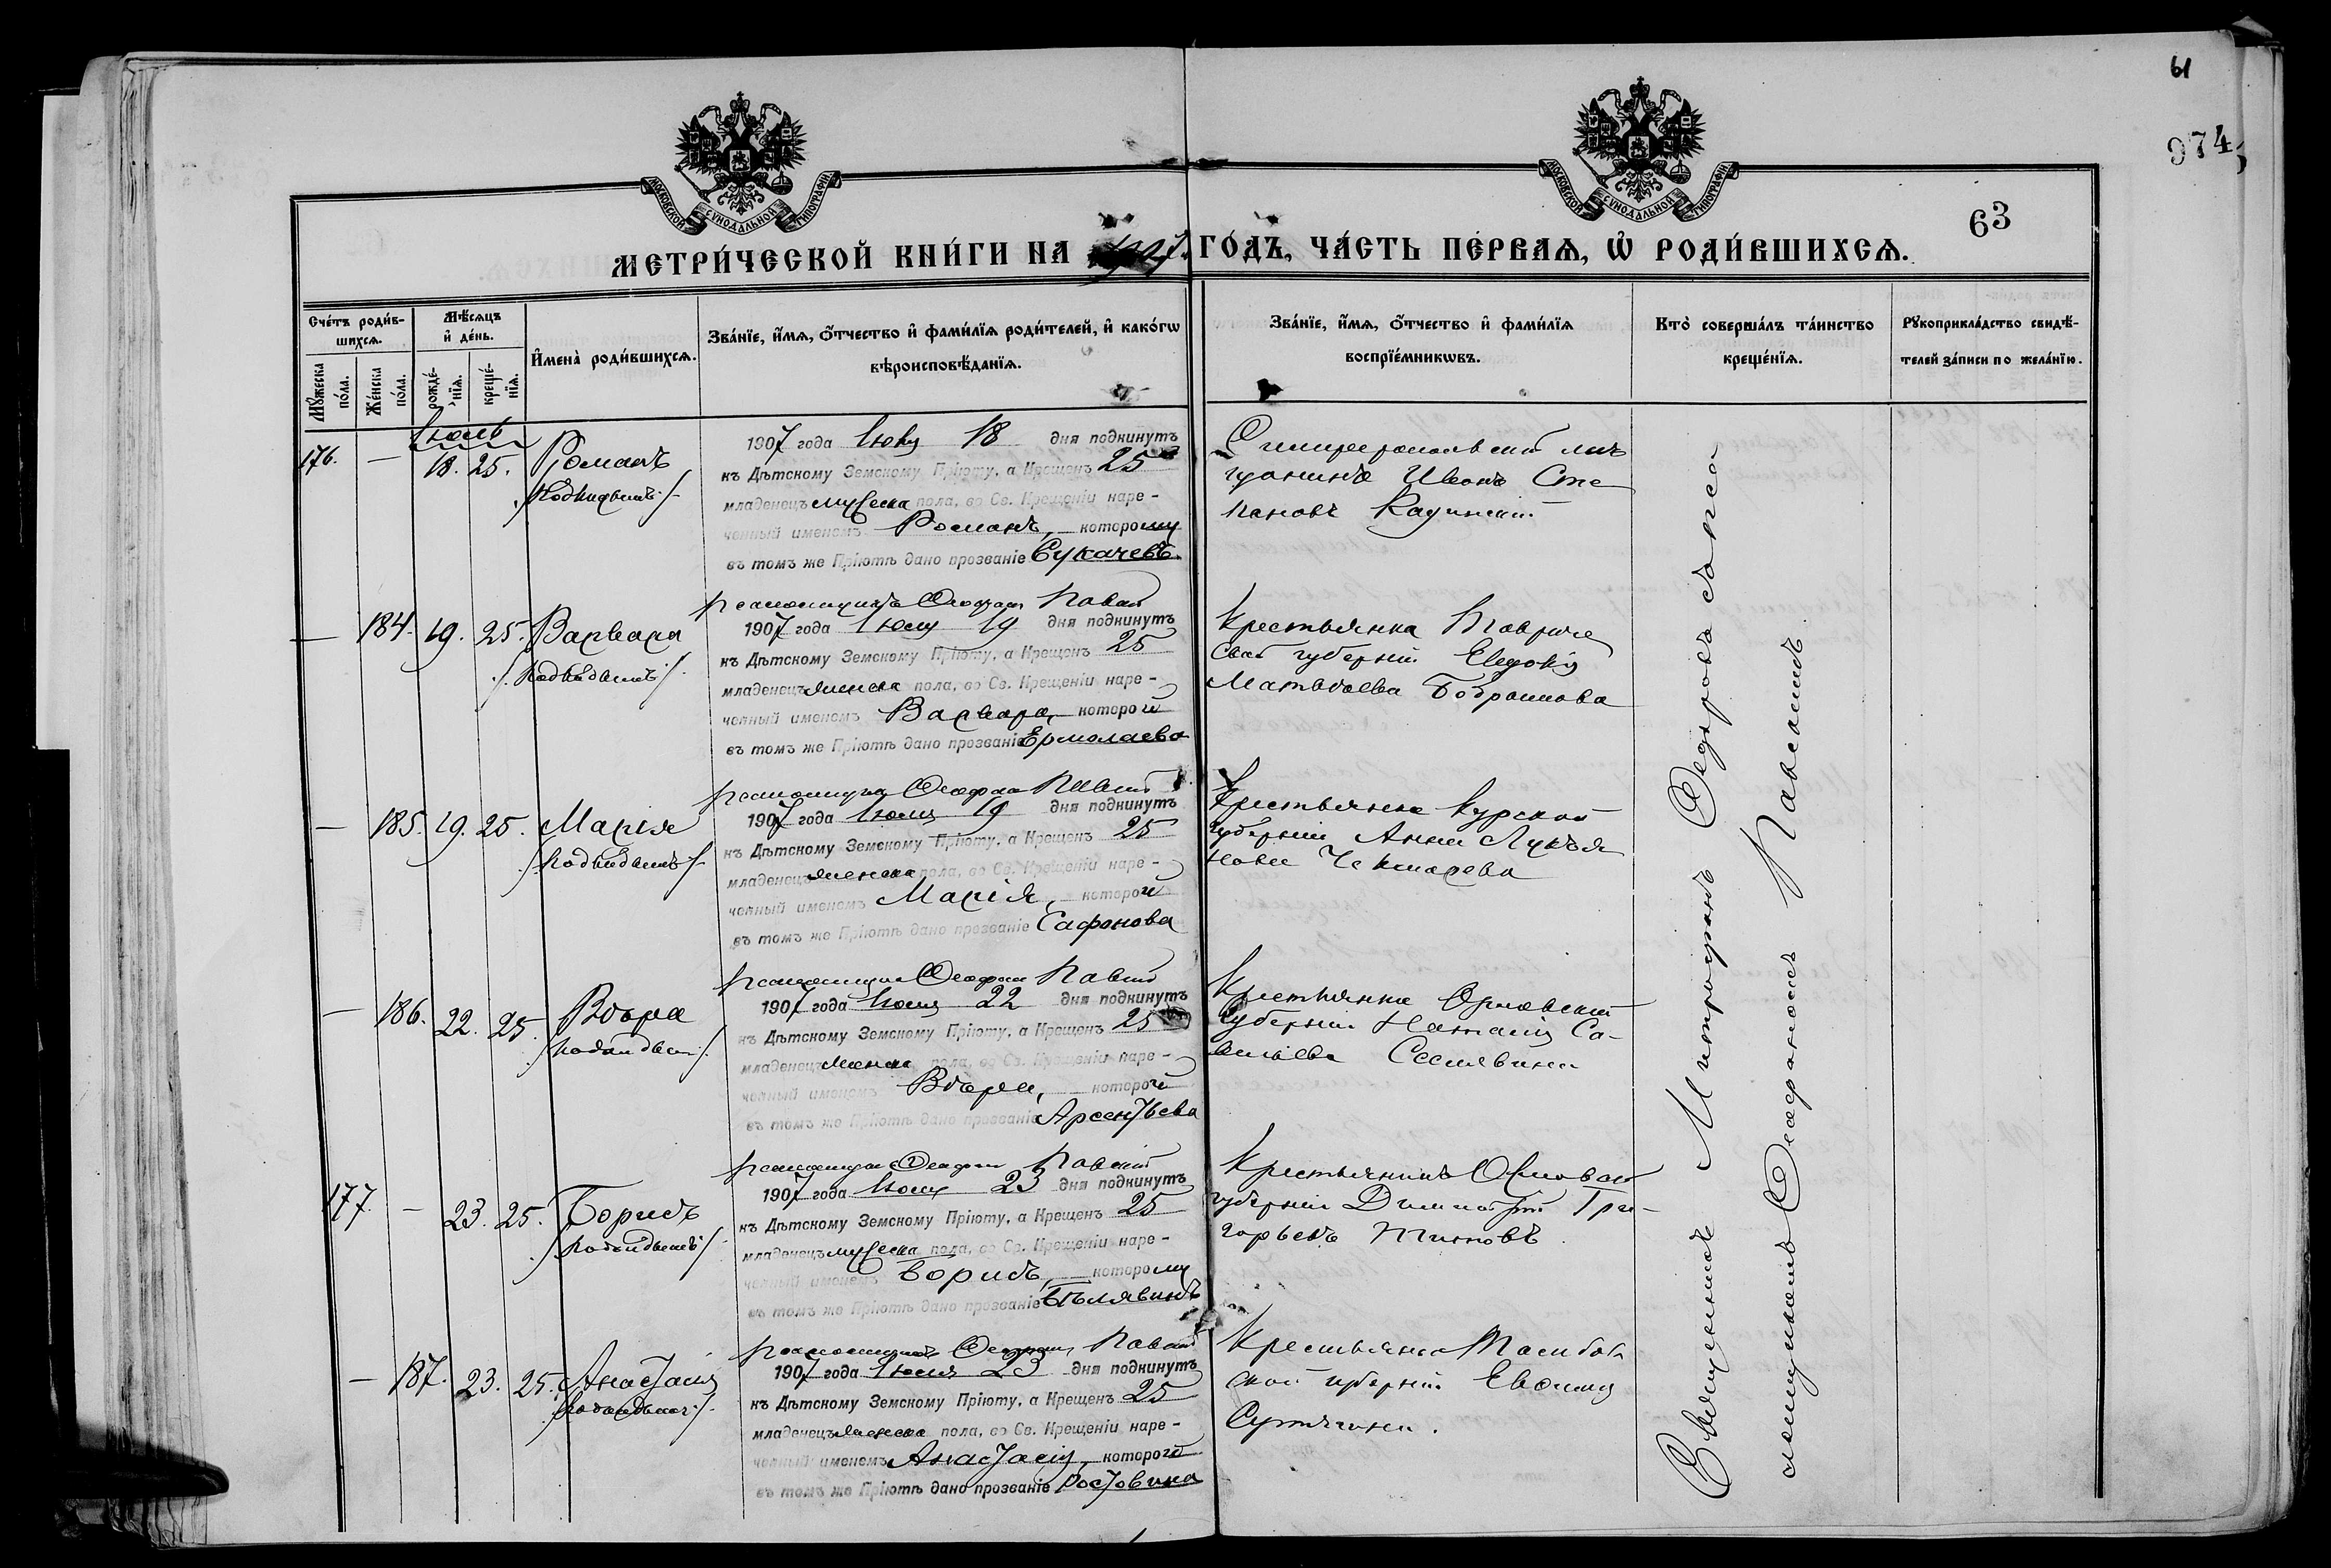 61
974
63
МОСКОВСКОЙ СѴНОДАЛЬНОЙ ТИПОГРАФІИ
МОСКОВСКОЙ СѴНОДАЛЬНОЙ ТИПОГРАФІИ
МЕТРИ́ЧЕСКОЙ КНИ́ГИ НА 1907. ГО́ДЪ, ЧА́СТЬ ПЕ́РВАѦ, Ѡ҆ РОДИ́ВШИХСѦ.
Сче́тъ роди́в-
шихсѧ.
Мꙋ́жеска по́ла.
Же́нска по́ла.
Мѣ́сѧцъ
и҆ де́нь.
рожде́-нїѧ.
креще́-нїѧ.
И҆мена̀ роди́вшихсѧ.
Зва́нїе, и҆́мѧ, ѻ҆́тчество и҆ фами́лїѧ роди́телей, и҆ како́гѡ
вѣроисповѣ́данїѧ.
Зва́нїе, и҆́мѧ, ѻ҆́тчество и҆ фами́лїѧ
воспрїе́мникѡвъ.
Кто̀ соверша́лъ та́инство
креще́нїѧ.
Рꙋкоприкла́дство свидѣ́-
телей за́писи по жела́нїю.
Іюль
176. — 18. 25. Романъ
/Подкидышъ/
1907 года Іюля 18 дня подкинутъ
къ Дѣтскому Земскому Пріюту, а Крещенъ 25
младенецъ мужеска пола, во Св. Крещеніи наре-
ченный именемъ Романъ, которому
въ томъ же Пріютѣ дано прозваніе Сукачевъ.
Симферопольскій мѣ
щанинъ Иванъ Сте
пановъ
— 184. 19. 25. Варвара
/Подкидышъ/
1907 года Іюля 19 дня подкинутъ
къ Дѣтскому Земскому Пріюту, а Крещенъ 25
младенецъ женска пола, во Св. Крещеніи наре-
ченный именемъ Варвара, которой
въ томъ же Пріютѣ дано прозваніе Ермолаева
Крестьянка Тавриче
ской губерніи Евдокія
Матвѣева
— 185. 19. 25. Марія
/Подкидышъ/
1907 года Іюля 19 дня подкинутъ
къ Дѣтскому Земскому Пріюту, а Крещенъ 25
младенецъ женска пола, во Св. Крещеніи наре-
ченный именемъ Марія, которой
въ томъ же Пріютѣ дано прозваніе Сафонова
Крестьянка Курской
губерніи Анна Лукья
нова Чекмарева
— 186. 22. 25. Вѣра
/Подкидышъ/
1907 года Іюля 22 дня подкинутъ
къ Дѣтскому Земскому Пріюту, а Крещенъ 25
младенецъ женска пола, во Св. Крещеніи наре-
ченный именемъ Вѣра, которой
въ томъ же Пріютѣ дано прозваніе Арсентьева
Крестьянка Орловской
губерніи Наталія Са-
вельева
177. — 23. 25. Борисъ
/Подкидышъ/
1907 года Іюля 23 дня подкинутъ
къ Дѣтскому Земскому Пріюту, а Крещенъ 25
младенецъ мужеска пола, во Св. Крещеніи наре-
ченный именемъ Борисъ, которому
въ томъ же Пріютѣ дано прозваніе Бѣлявинъ
Крестьянинъ Орловской
губерніи Димитрій Гри-
горьевъ Титовъ.
— 187. 23. 25. Анастасія
/Подкидышъ/
1907 года Іюля 23 дня подкинутъ
къ Дѣтскому Земскому Пріюту, а Крещенъ 25
младенецъ женска пола, во Св. Крещеніи наре-
ченный именемъ Анастасія, которой
въ томъ же Пріютѣ дано прозваніе Ростовина
Крестьянка Тамбов
ской губерніи
Сутягина.
Священникъ Митрофанъ съ
псаломщикомъ